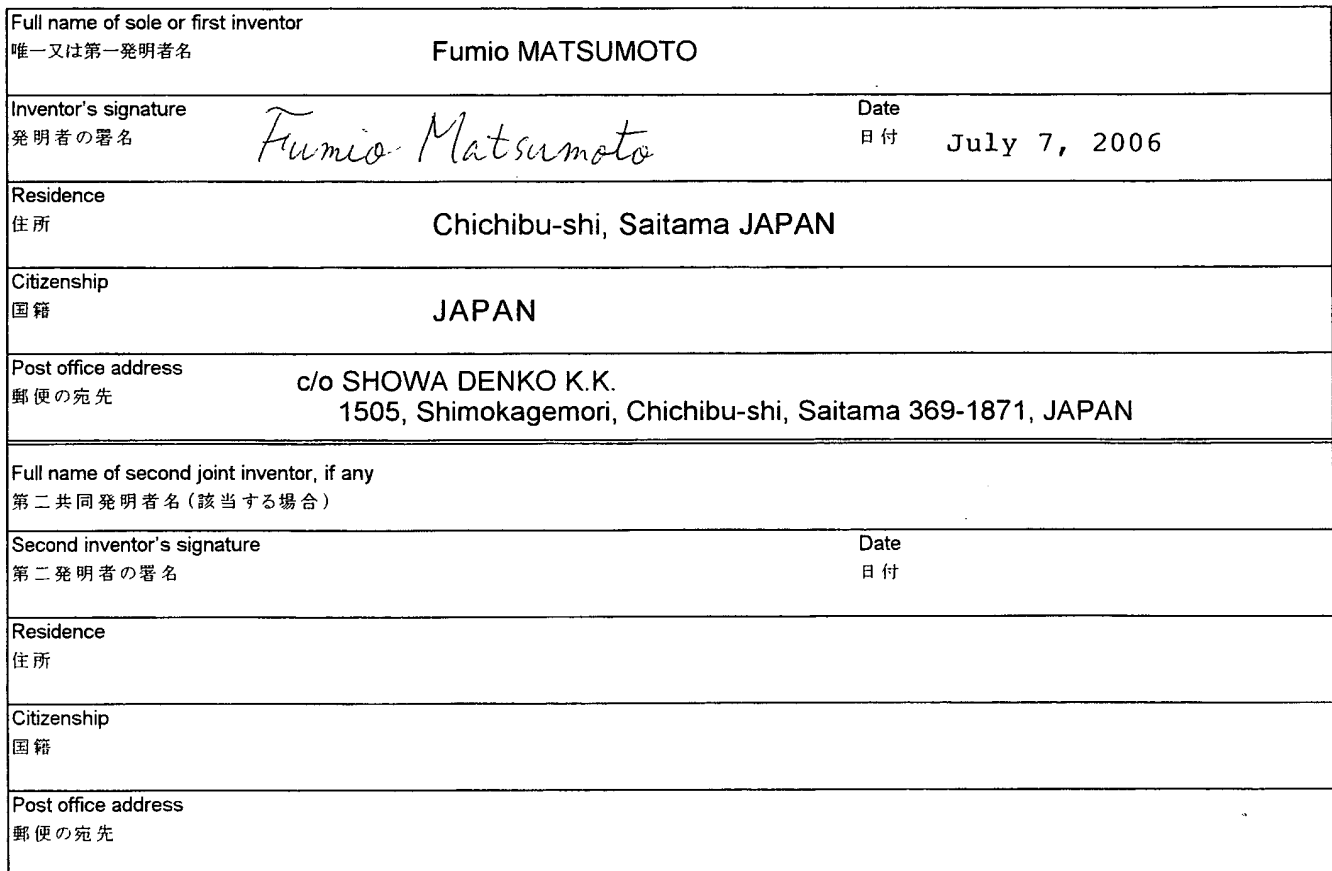 Full name of sole or first inventor
唯一又は第一発明者名 Fumio MATSUMOTO
Inventor's signature Date
発明者の署名 Fumio Matsumoto 日付 July 7, 2006
Residence
住所 Chichibu-shi, Saitama JAPAN
Citizenship
国籍 JAPAN
Post office address c/o SHOWA DENKO K.K.
郵便の宛先 1505, Shimokagemori, Chichibu-shi, Saitama 369-1871, JAPAN
Full name of second joint inventor, if any
第二共同発明者名(該当する場合)
Second inventor's signature Date
第二発明者の署名 日付
Residence
住所
Citizenship
国籍
Post office address
郵便の宛先